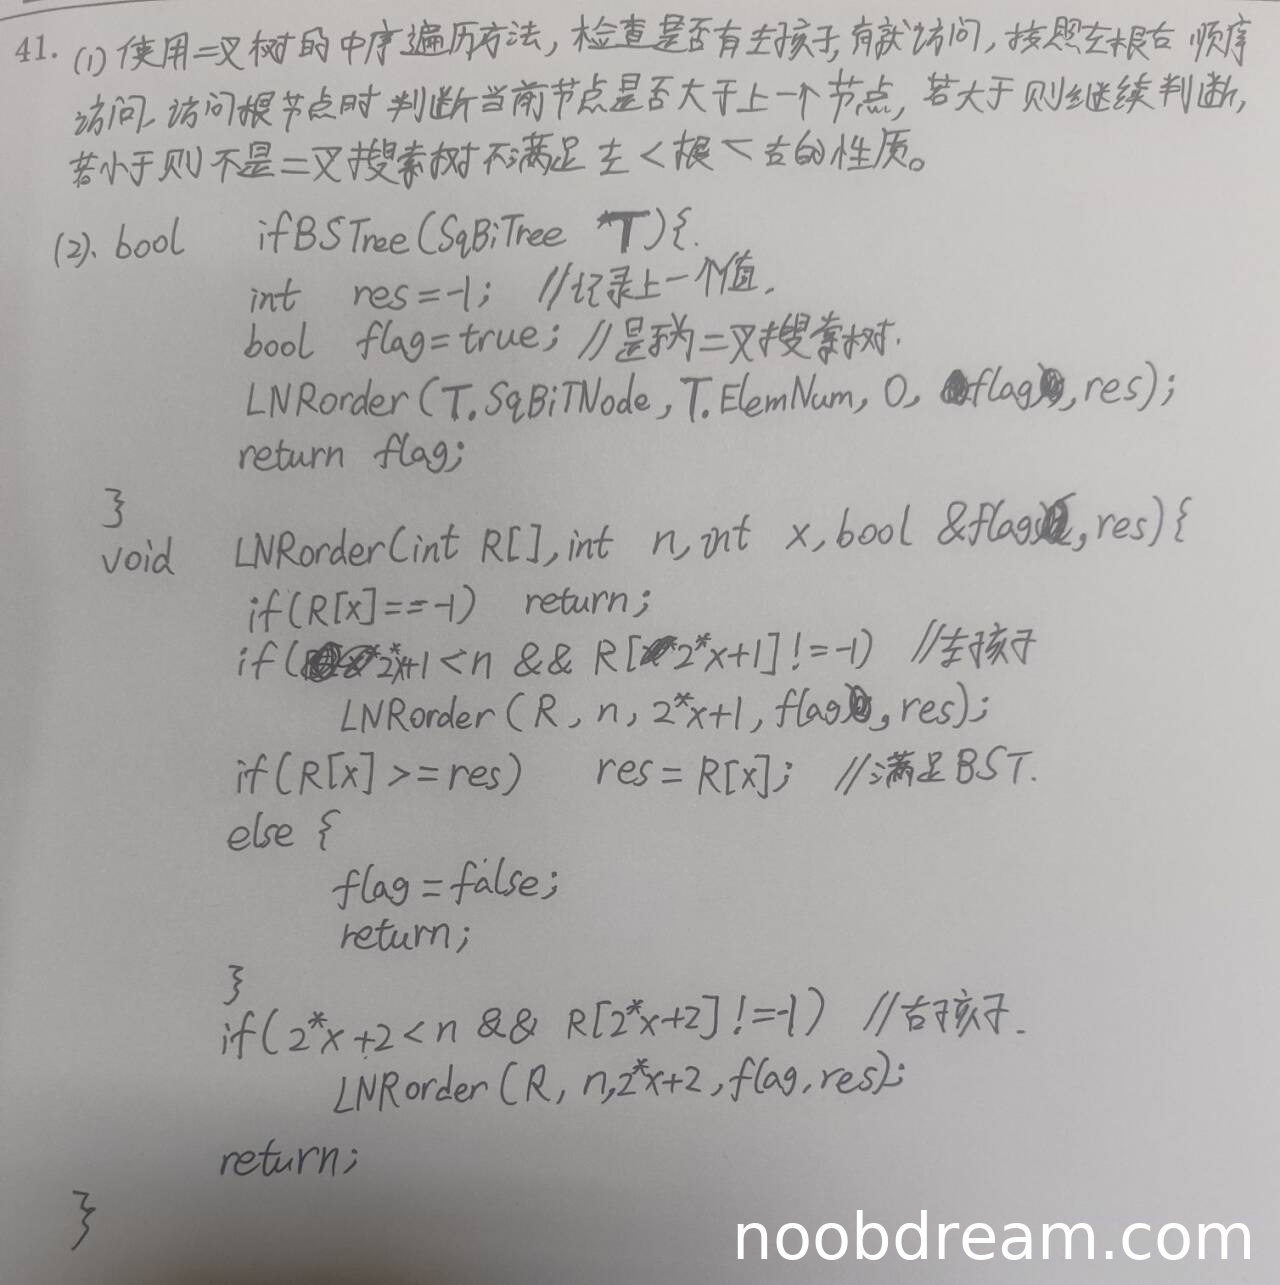 41. (1) 使用二叉树的中序遍历方法, 检查是否有左孩子, 有就访问, 按照左根右 顺序
访问. 访问根节点时判断当前节点是否大于上一个节点, 若大于则继续判断,
若小于则不是二叉搜索树不满足左<根<右的性质。
(2). bool ifBSTree(SqBiTree *T){
int res=-1; //记录上一个值.
bool flag=true; //是否为二叉搜索树.
LNRorder(T.SqBiTNode, T.ElemNum, 0, flag, res);
return flag;
}
void LNRorder(int R[], int n, int x, bool &flag, res){
if(R[x]==-1) return;
if(2*x+1<n && R[2*x+1]!=-1) //左孩子
LNRorder(R, n, 2*x+1, flag, res);
if(R[x]>=res) res=R[x]; //满足BST.
else {
flag=false;
return;
}
if(2*x+2<n && R[2*x+2]!=-1) //右孩子.
LNRorder(R, n, 2*x+2, flag, res);
return;
}
noobdream.com